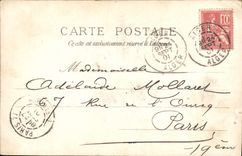 CARTE POSTALE
Ce côté est exclusivement réservé à l'adresse
10
ALGER
Mademoiselle
Adelaïde Mollaret
7 Rue de l'Ourcq
Paris
PARIS
19ème